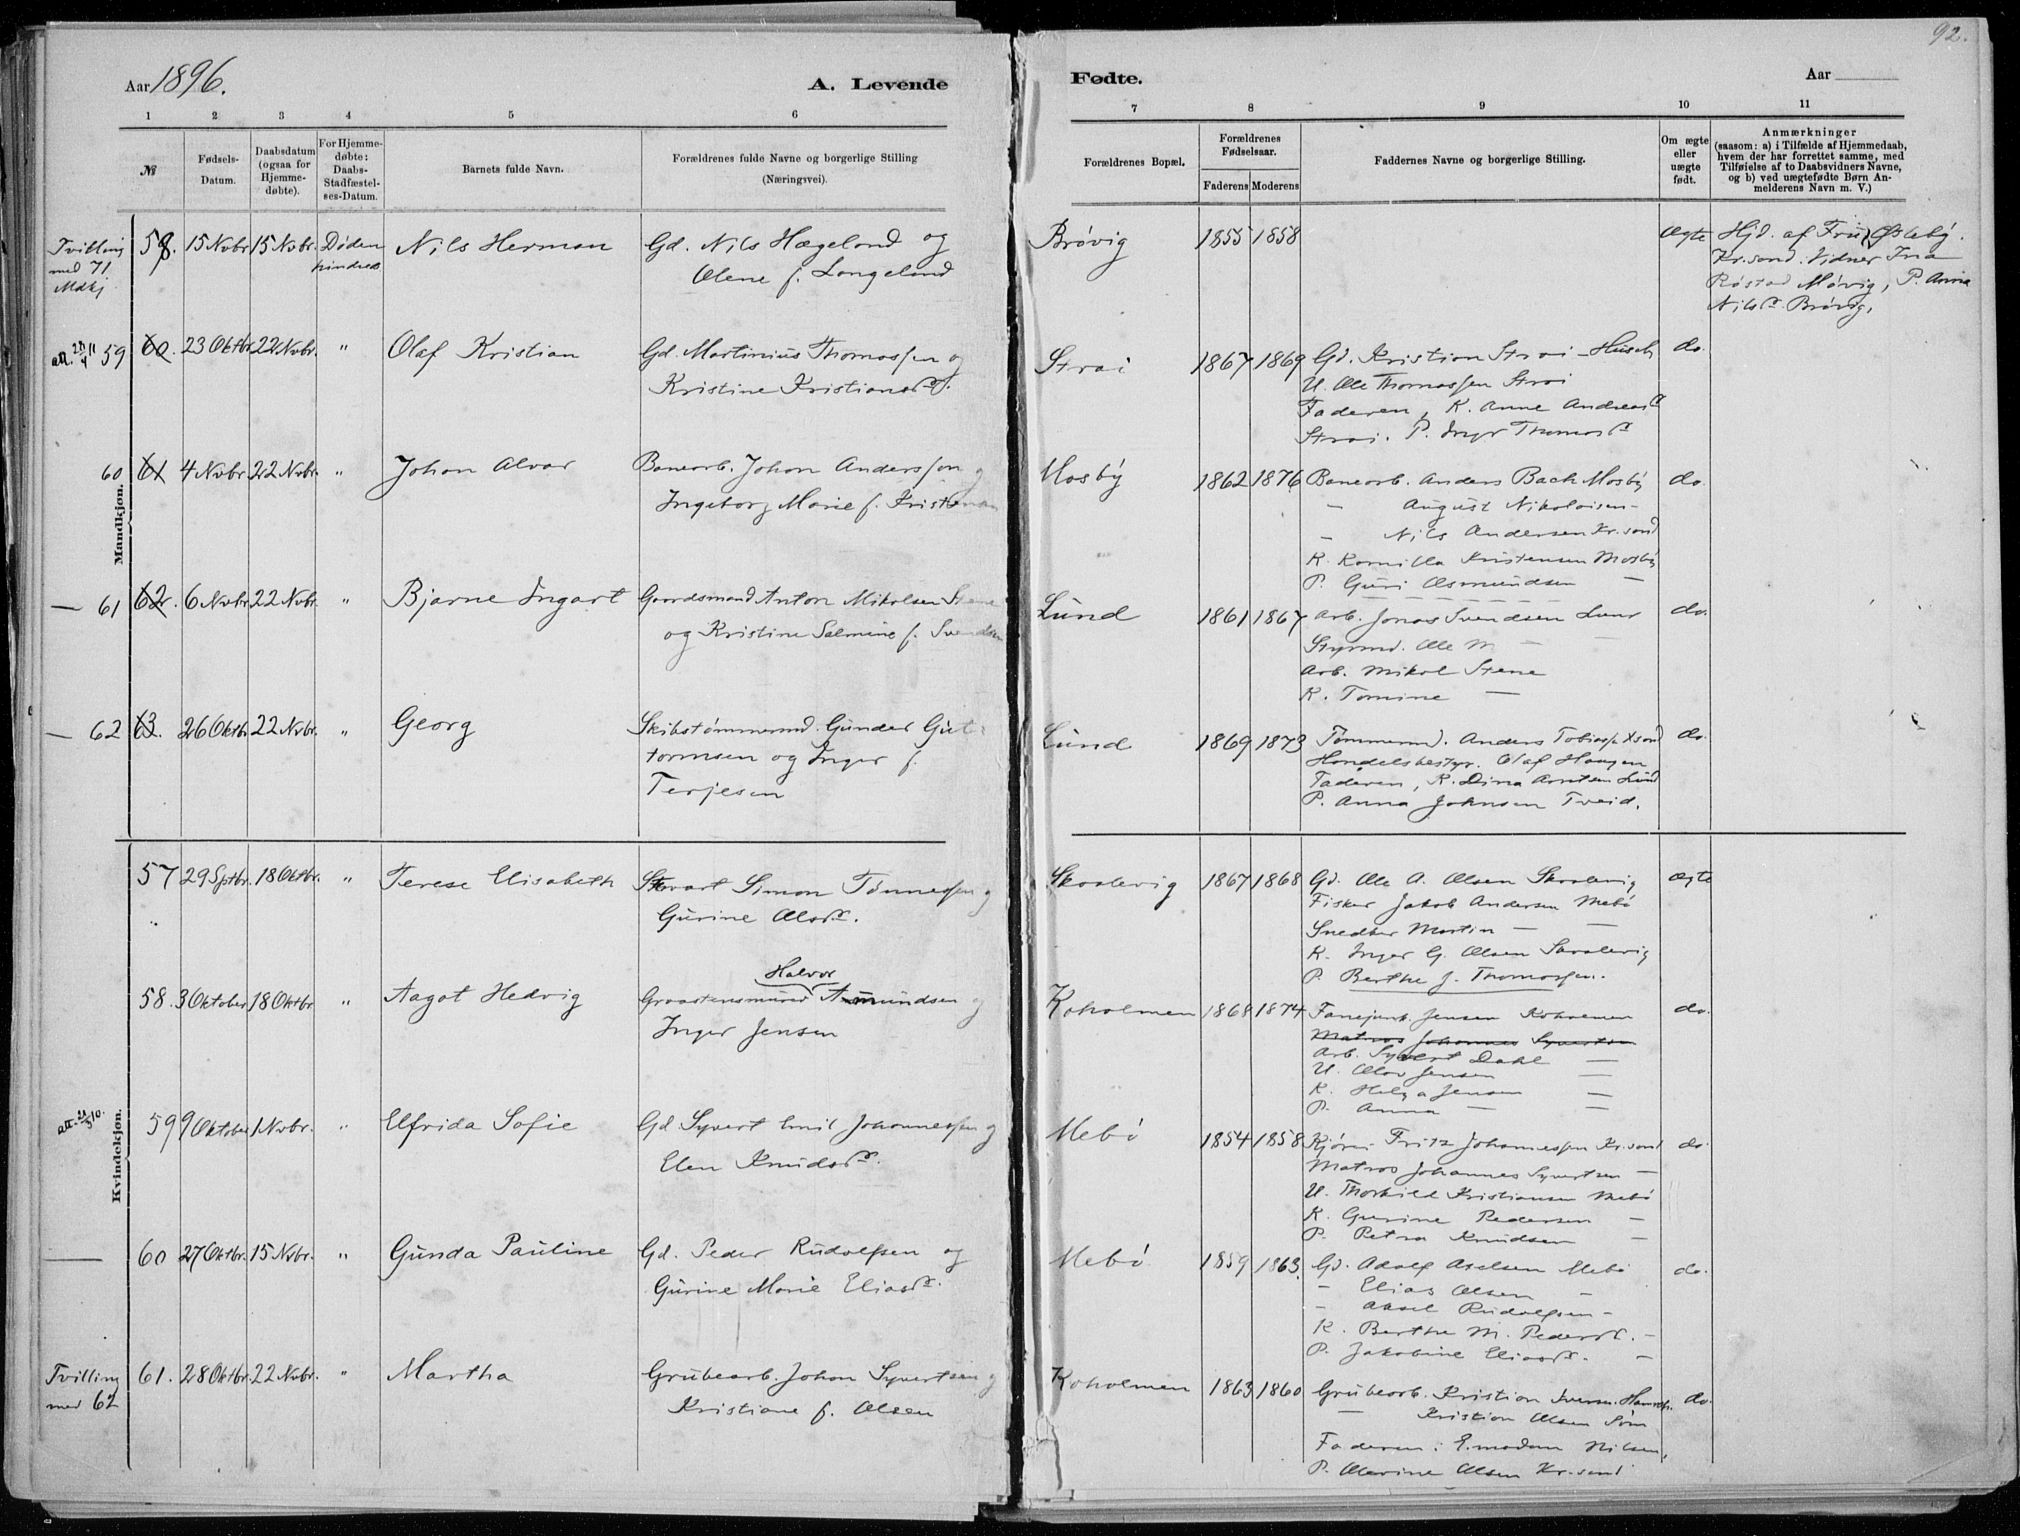 92.
Aar 1896.
A. Levende
Fødte.
Aar
1 2 3 4 5 6
7 8 9 10 11
№
Fødsels-Datum.
Daabsdatum (ogsaa for Hjemme-døbte).
For Hjemme-døbte: Daabs-Stadfæstel-ses-Datum.
Barnets fulde Navn.
Forældrenes fulde Navne og borgerlige Stilling (Næringsvei).
Forældrenes Bopæl.
Forældrenes Fødselsaar.
Faderens Moderens
Faddernes Navne og borgerlige Stilling.
Om ægte eller uægte født.
Anmærkninger (saasom: a) i Tilfælde af Hjemmedaab, hvem der har forrettet samme, med Tilføielse af to Daabsvidners Navne, og b) ved uægtefødte Børn Anmelderens Navn m. V.)
Mandkjøn.
Tvilling med 71 Mdkj
58. 15 Nvbr. 15 Nvbr. Døden hindred Nils Herman
Gd. Nils Hægeland og
Olene f. Langeland
Brøvig 1855 1858
Ægte
Hjd. af Fru Østebø.
Kr.sand. Vidner Ina
Røstad Møvig, P. Anna
Nilsd. Brøvig.
att. 59 60. 23 Oktbr. 22 Nvbr. " Olaf Kristian
Gd. Martinius Thomassen og
Kristine Kristiansd.
Strai 1867 1869
Gd. Kristian Strai
U. Ole Thomassen Strai
Faderen, K. Anne Andreasd
Strai. P. Inger Thomasd
do.
60 61 4 Nvbr. 22 Nvbr. " Johan Alvar
Banearb. Johan Anderssen og
Ingeborg Marie f. Kristensen
Mosby 1862 1876
Banearb. Anders Bach Mosby
– August Nikolaisen –
– Nils Andersen Kr.sand
K. Kornilla Kristensen Mosby
P. Guri Asmundsen —
do.
— 61 62. 6 Nvbr. 22 Nvbr. " Bjarne Ingart
Gaardsmand Anton Mikalsen Stene
og Kristine Salmine f. Svendsen
Lund 1861 1867
Arb. Jonas Svendsen Lund
Styrmd. Ole M —
Arb. Mikal Stene
K. Tomine —
do.
— 62 63. 26 Oktbr. 22 Nvbr. " Georg
Skibstømmermd. Gunder Gut-
tormsen og Inger f.
Terjesen
Lund 1869 1873
Tømmermd. Anders Tobiass Krsand
Handelsbestyr. Olaf Haugen
Faderen, K. Dina Arntsen Lund
P. Anna Johnsen Tveid.
do.
Kvindekjøn.
57 29 Sptbr. 18 Oktbr. " Terese Elisabeth
Stuvart Simon Tønnessen og
Gurine Olsd.
Skaalevig 1867 1868
Gd. Ole A. Olsen Skaalevig
Fisker Jakob Andersen Mebø
Snedker Martin — —
K. Inger G. Olsen Skaalevig
P. Berthe J. Thomassen.
Ægte
58. 3 Oktober 18 Oktbr. " Aagot Hedvig
Halvor
Graastensmurer Amundsen og
Inger Jensen
Koholmen 1868 1874
Jensen Koholmen
Matros Johannes Syvertsen
Arb. Syvert Dahl —
U. Olav Jensen —
K. Helga Jensen —
P. Anna — —
do.
att. 59 9 Oktober 1 Nvbr. " Elfrida Sofie
Gd. Syvert Emil Johannessen og
Elen Knudsd.
Mebø 1854 1858
Fritz Johannessen Kr.sand
Matros Johannes Syvertsen —
U. Thorkild Kristiansen Mebø
K. Gurine Pedersen —
P. Petra Knudsen —
do.
— 60 27 Oktbr. 15 Nvbr. " Gunda Pauline
Gd. Peder Rudolfsen og
Gurine Marie Eliasd.
Mebø 1859 1863.
Gd. Adolf Axelsen Mebø
– Elias Olsen –
– Aksel Rudolfsen –
K. Berthe M. Pedersd. –
P. Jakobine Eliasd. –
do.
Tvilling med 62
61. 28 Oktbr. 22 Nvbr. " Martha
Grubearb. Johan Syvertsen og
Kristiane f. Olsen
Koholmen 1863 1860
Grubearb. Kristian Iversen
— Kristian Olsen Søm
Faderen: E.madam Nilsen,
P. Olevine Olsen Kr.sand
do.